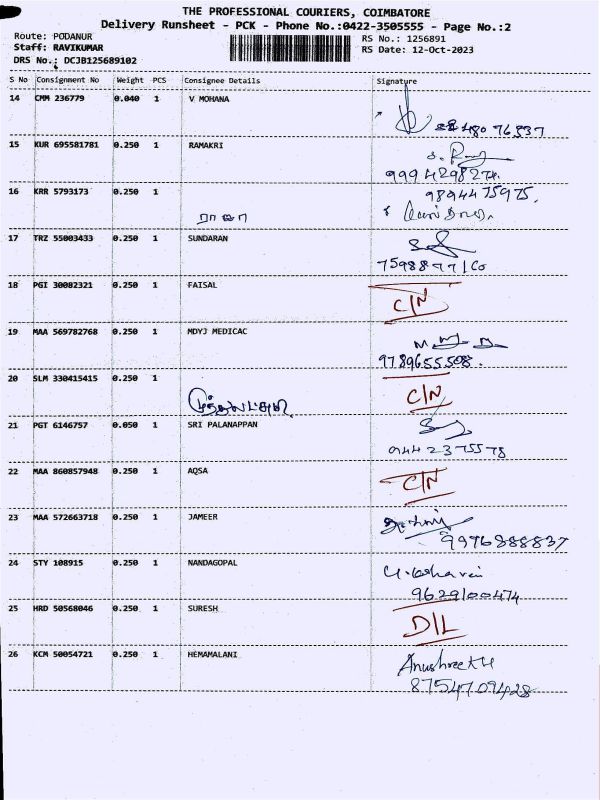 THE PROFESSIONAL COURIERS, COIMBATORE
Delivery Runsheet - PCK - Phone No.:0422-3505555 - Page No.:2
Route: PODANUR
RS No.: 1256891
Staff: RAVIKUMAR
RS Date: 12-Oct-2023
DRS No.: DCJB125689102
S No Consignment No Weight PCS Consignee Details Signature
14 CMM 236779 0.040 1 V MOHANA
76537
15 KUR 695581781 0.250 1 RAMAKRI
9994298274.
16 KRR 5793173 0.250 1
9894475975.
ராஜா
17 TRZ 55003433 0.250 1 SUNDARAN
18 PGI 30082321 0.250 1 FAISAL
C/N
19 MAA 569782768 0.250 1 MDYJ MEDICAC
9789655508.
20 SLM 330415415 0.250 1
C/N
21 PGT 6146757 0.050 1 SRI PALANAPPAN
9442375578
22 MAA 860857948 0.250 1 AQSA
C/N
23 MAA 572663718 0.250 1 JAMEER
9976888837
24 STY 108915 0.250 1 NANDAGOPAL
9629100474
25 HRD 50568046 0.250 1 SURESH
D/L
26 KCM 50054721 0.250 1 HEMAMALANI
8754709428